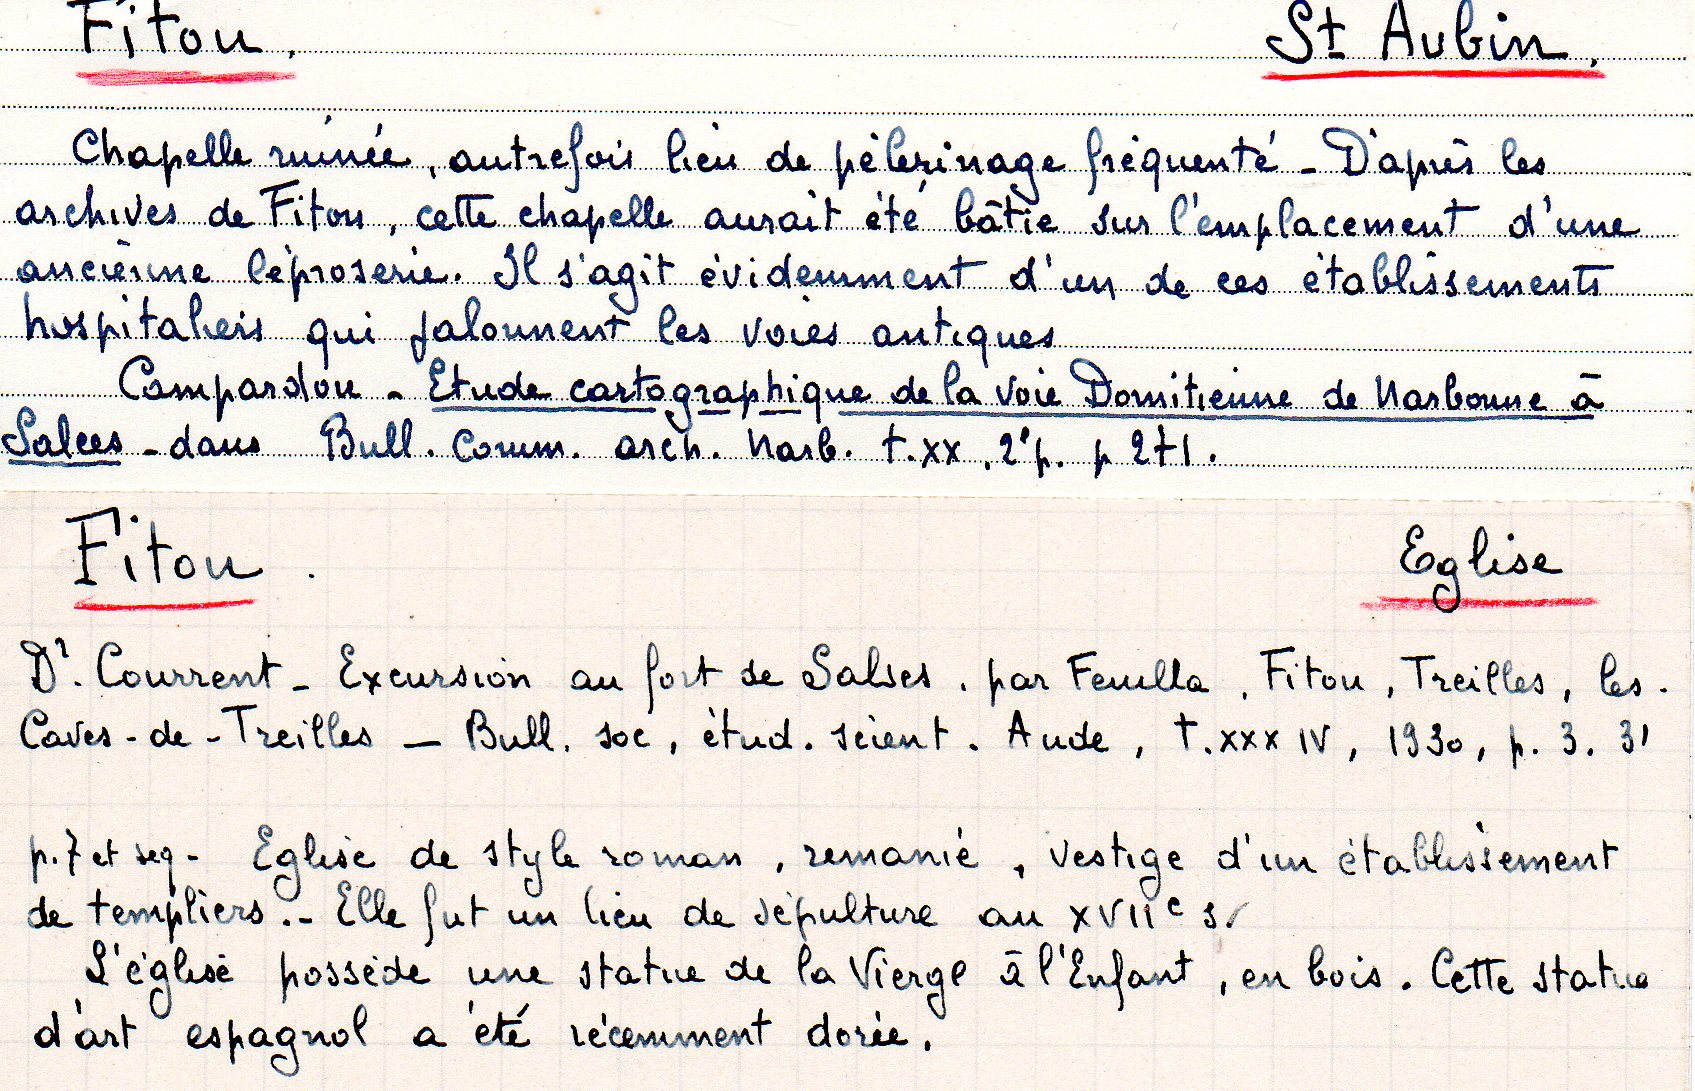 Fitou.
St Aubin.
Chapelle ruinée, autrefois lieu de pèlerinage fréquenté - D'après les
archives de Fitou, cette chapelle aurait été bâtie sur l'emplacement d'une
ancienne léproserie. Il s'agit évidemment d'un de ces établissements
hospitaliers qui jalonnent les voies antiques
Campardou - Etude cartographique de la voie Domitienne de Narbonne à
Salces - dans Bull. Comm. arch. Narb. t.XX, 2e p. p 271.
Fitou.
Eglise
Dr. Courrent - Excursion au fort de Salses, par Feuilla, Fitou, Treilles, les
Caves-de-Treilles — Bull. soc, étud. scient. Aude, t.XXXIV, 1930, p. 3. 31
p.7 et seq - Eglise de style roman, remanié, vestige d'un établissement
de templiers.- Elle fut un lieu de sépulture au XVIIe s.
L'église possède une statue de la Vierge à l'Enfant, en bois. Cette statue
d'art espagnol a été récemment dorée.